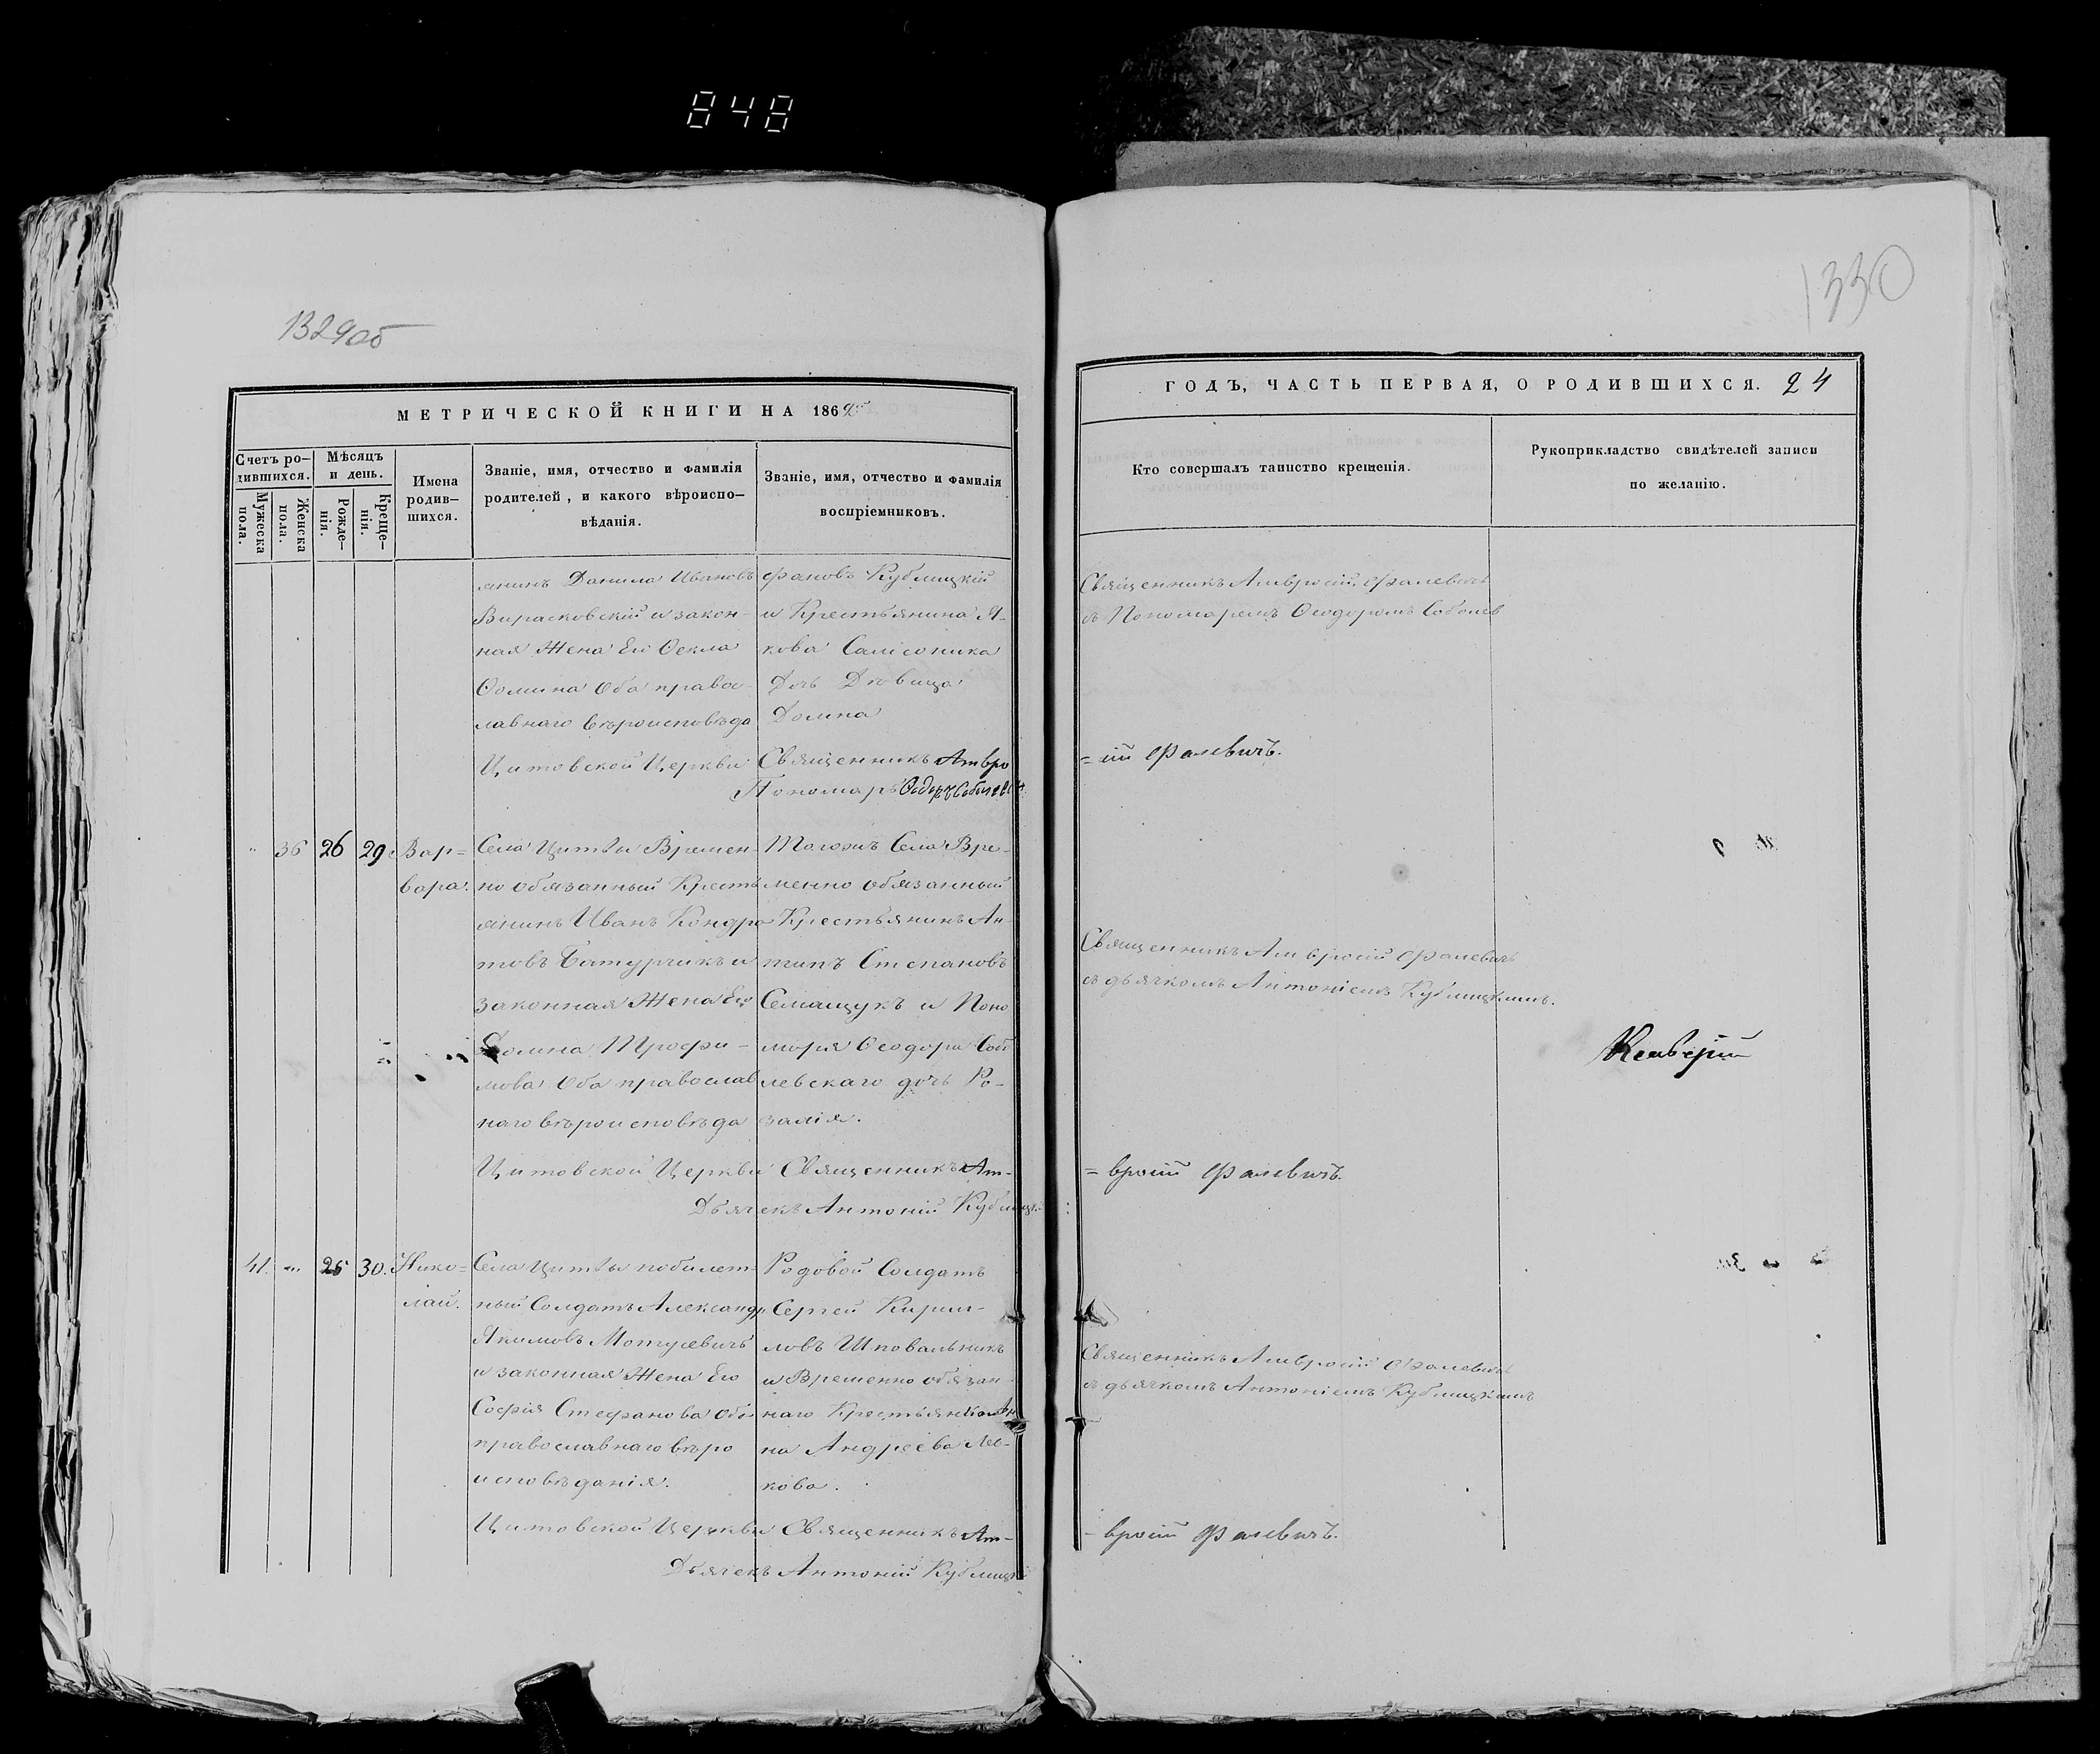 848
1329об
МЕТРИЧЕСКОЙ КНИГИ НА 186
Счетъ родившихся.
Мужеска пола.
Женска пола.
Мѣсяцъ и день.
Рожденія.
Крещенія.
Имена
родив-
шихся.
Званіе, имя, отчество и фамилія
родителей, и какого вѣроиспо-
вѣданія.
Званіе, имя, отчество и фамилія
воспріемниковъ.
янинъ Данила Ивановъ
и закон-
ная Жена Его Ѳекла
Ѳомина Оба право-
славнаго вѣроисповѣда
фановъ Кублицкій
и Крестьянина Я-
кова
Дочь Дѣвица
Домна
Цитовской Церкви Священникъ Амвро
Пономарь Ѳедоръ
36 26 29 Вар=
вара.
Села Цитвы Времен-
но обязанный Кресть
янинъ Иванъ Кондра
товъ Батурчикъ и
законная Жена Его
Домна Трофи-
мова Оба православ
наго вѣроисповѣда
Тогожъ Села Вре-
менно обязанный
Крестьянинъ Ан-
типъ Степановъ
Семащукъ и Поно
моря Ѳеодора Собо
левскаго дочь Ро-
залія.
Цитовской Церкви Священникъ Ам-
Дьячекъ Антоній Кублицкі
41. 30. Нико=
лай.
Села Цитвы побилет-
ный Солдатъ Александръ
Якимовъ Мотусевичъ
и законная Жена Его
Софія Стефанова Оба
православнаго вѣро
исповѣданія.
Родовой Солдатъ
Сергей Кирил-
ловъ Шповальникъ
и Временно обязан-
наго Крестьянка Ан
на Андреева
кова.
Цитовской Церкви Священникъ Ам-
Дьячекъ Антоній Кублицкі
1330
ГОДЪ, ЧАСТЬ ПЕРВАЯ, О РОДИВШИХСЯ. 24
Кто совершалъ таинство крещенія.
Рукоприкладство свидѣтелей записи
по желанію.
Священникъ Амвросій Фалевичъ
съ Пономаремъ Ѳеодоромъ Соболев
= ій Фалевичъ.
Священникъ Амвросій Фалевичъ
съ дьячкомъ Антоніемъ Кублицкимъ.
= вросій Фалевичъ.
Священникъ Амвросій Фалевичъ
съ дьячкомъ Антоніемъ Кублицкимъ
- вросій Фалевичъ.